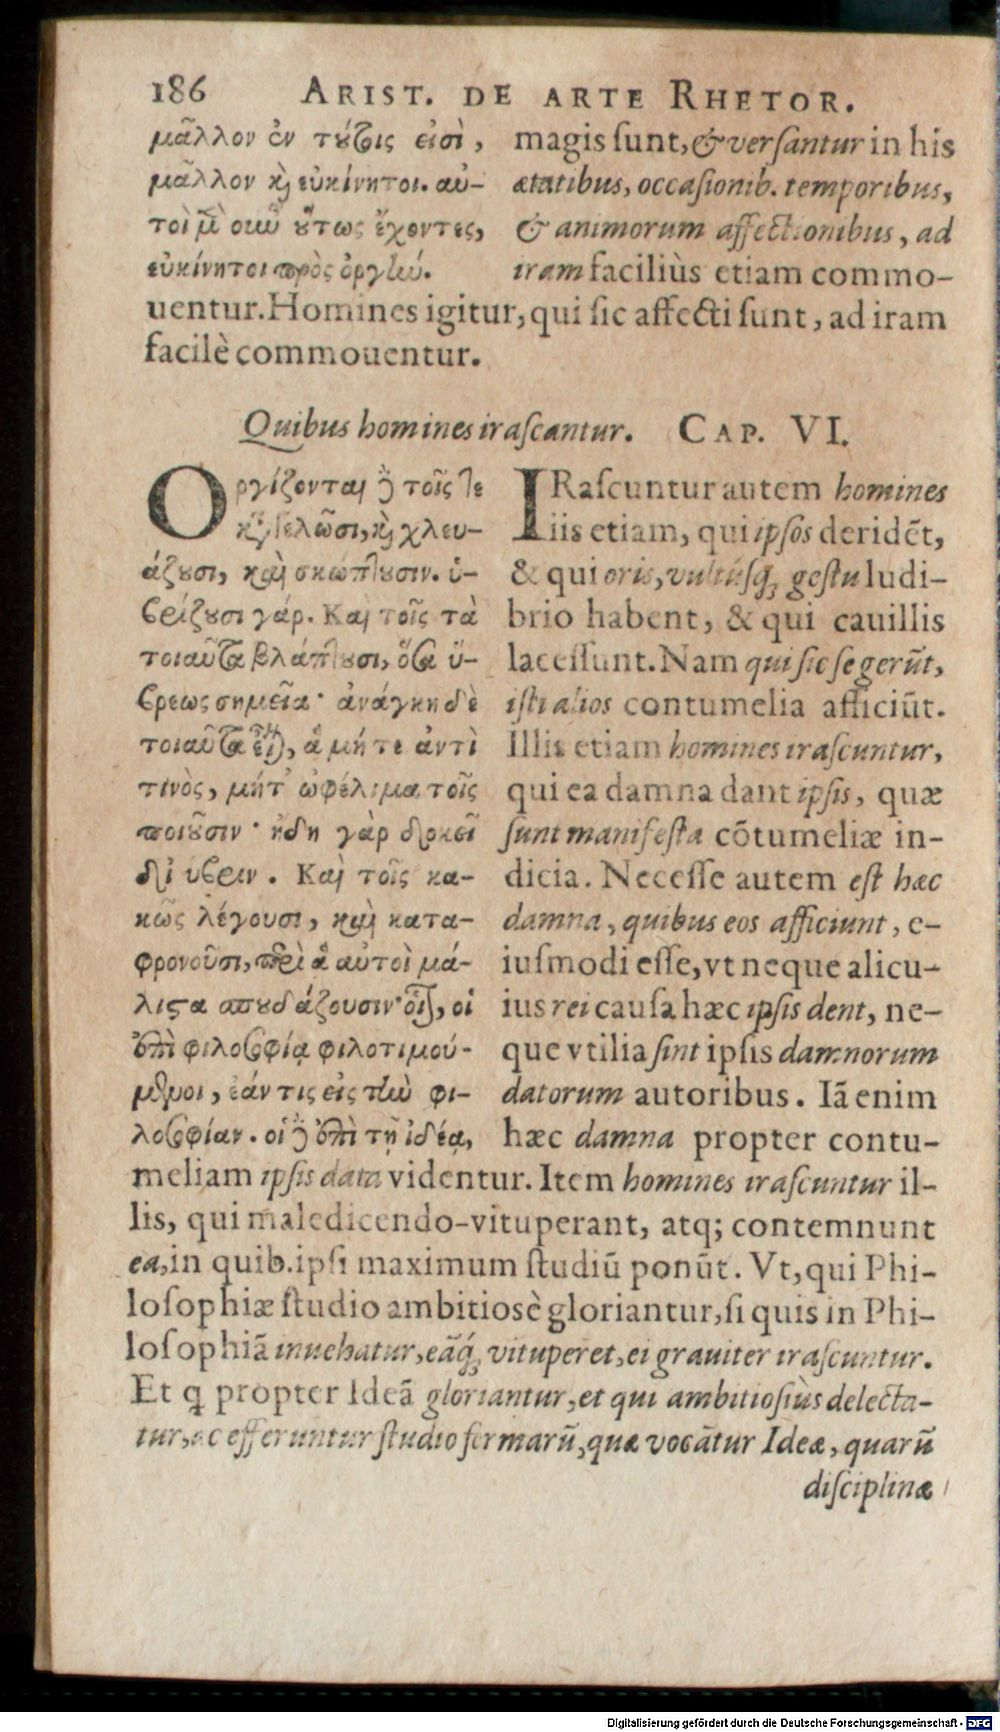 186 ARIST. DE ARTE RHETOR.
μᾶλλον ἐν τούτοις εἰσὶ,
μᾶλλον καὶ εὐκίνητοι. αὐ-
τοὶ μὲν οὖν οὕτως ἔχοντες,
εὐκίνητοι πρὸς ὀργήν.
magis ſunt, & verſantur in his
ætatibus, occaſionib. temporibus,
& animorum affectionibus, ad
iram faciliùs etiam commo-
uentur. Homines igitur, qui ſic affecti ſunt, ad iram
facilè commouentur.
Quibus homines iraſcantur. CAP. VI.
Οργίζονται δὲ τοῖς τε
καταγελῶσι, καὶ χλευ-
άζουσι, καὶ σκώπτουσιν. ὑ-
βρίζουσι γάρ. Καὶ τοῖς τὰ
τοιαῦτα βλάπτουσι, ὅσα ὕ-
βρεως σημεῖα· ἀνάγκη δὲ
τοιαῦτα εἶναι, ἃ μήτε ἀντί
τινὸς, μήτ' ὠφέλιμα τοῖς
ποιοῦσιν· ἤδη γὰρ δοκεῖ
δι' ὕβριν. Καὶ τοῖς κα-
κῶς λέγουσι, καὶ κατα-
φρονοῦσι, περὶ ἃ αὐτοὶ μά-
λιστα σπουδάζουσιν· οἷον, οἱ
ἐπὶ φιλοσοφίᾳ φιλοτιμού-
μενοι, ἐάν τις εἰς τὴν φι-
λοσοφίαν. οἱ δὲ ἐπὶ τῇ ἰδέᾳ,
IRaſcuntur autem homines
iis etiam, qui ipſos deridēt,
& qui oris, vultúſq; geſtu ludi-
brio habent, & qui cauillis
laceſſunt. Nam qui ſic ſe gerūt,
iſti alios contumelia afficiūt.
Illis etiam homines iraſcuntur,
qui ea damna dant ipſis, quæ
ſunt manifeſta cōtumeliæ in-
dicia. Neceſſe autem eſt hæc
damna, quibus eos afficiunt, e-
iuſmodi eſſe, vt neque alicu-
ius rei cauſa hæc ipſis dent, ne-
que vtilia ſint ipſis damnorum
datorum autoribus. Iā enim
hæc damna propter contu-
meliam ipſis data videntur. Item homines iraſcuntur il-
lis, qui maledicendo-vituperant, atq; contemnunt
ea, in quib. ipſi maximum ſtudiū ponūt. Vt, qui Phi-
loſophiæ ſtudio ambitioſè gloriantur, ſi quis in Phi-
loſophiā inuehatur, eāq́; vituperet, ei grauiter iraſcuntur.
Et q propter Ideā gloriantur, et qui ambitioſiùs delecta-
tur, ac efferuntur ſtudio formarū, quæ vocātur Ideæ, quarū
diſciplinæ
Digitalisierung gefördert durch die Deutsche Forschungsgemeinschaft - DFG